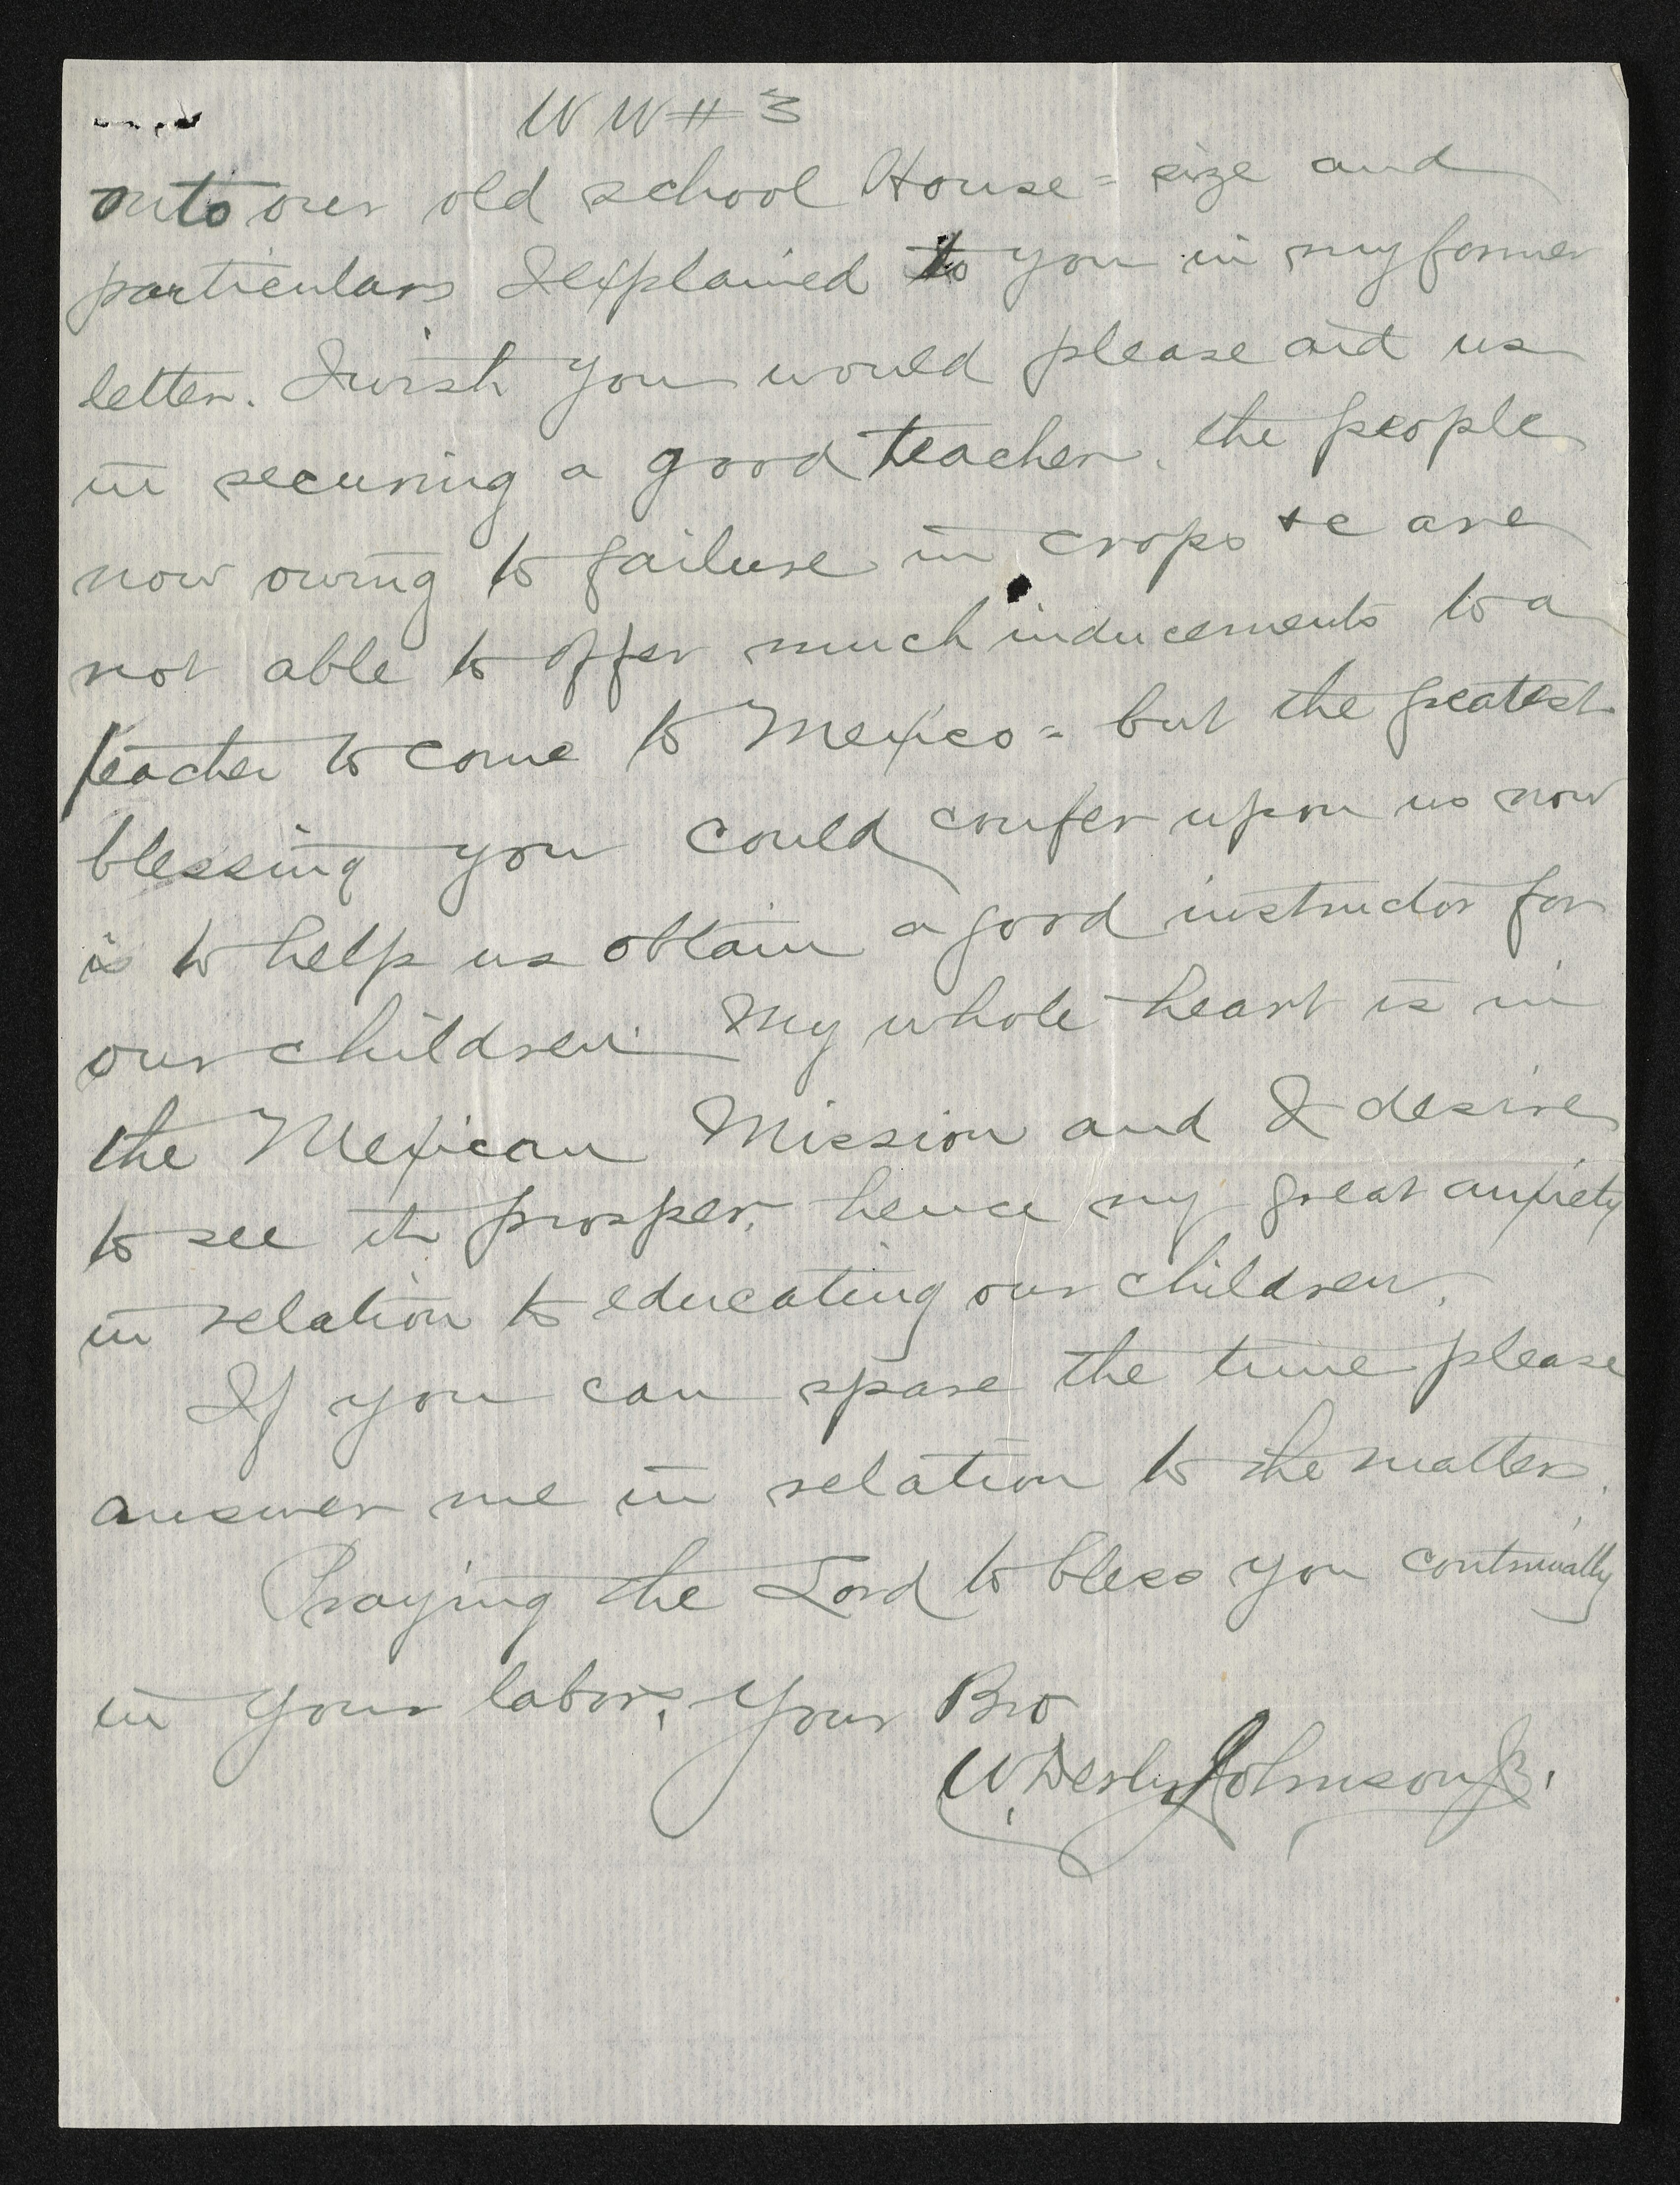 W W # 3
onto our old school House = size and
particulars I explained to you in my former
letter. I wish you would please aid us
in securing a good teacher. the people
now owing to failure in crops &c are
not able to offer much inducements to a
teacher to come to Mexico = but the greatest
blessing you could confer upon us now
is to help us obtain a good instructor for
our children. My whole heart is in
the Mexican Mission and I desire
to see it prosper, hence my great anxiety
in relation to educating our children.
If you can spare the time please
answer me in relation to the matter.
Praying the Lord to bless you continually
in your labors, Your Bro
W. Derby Johnson Jr.